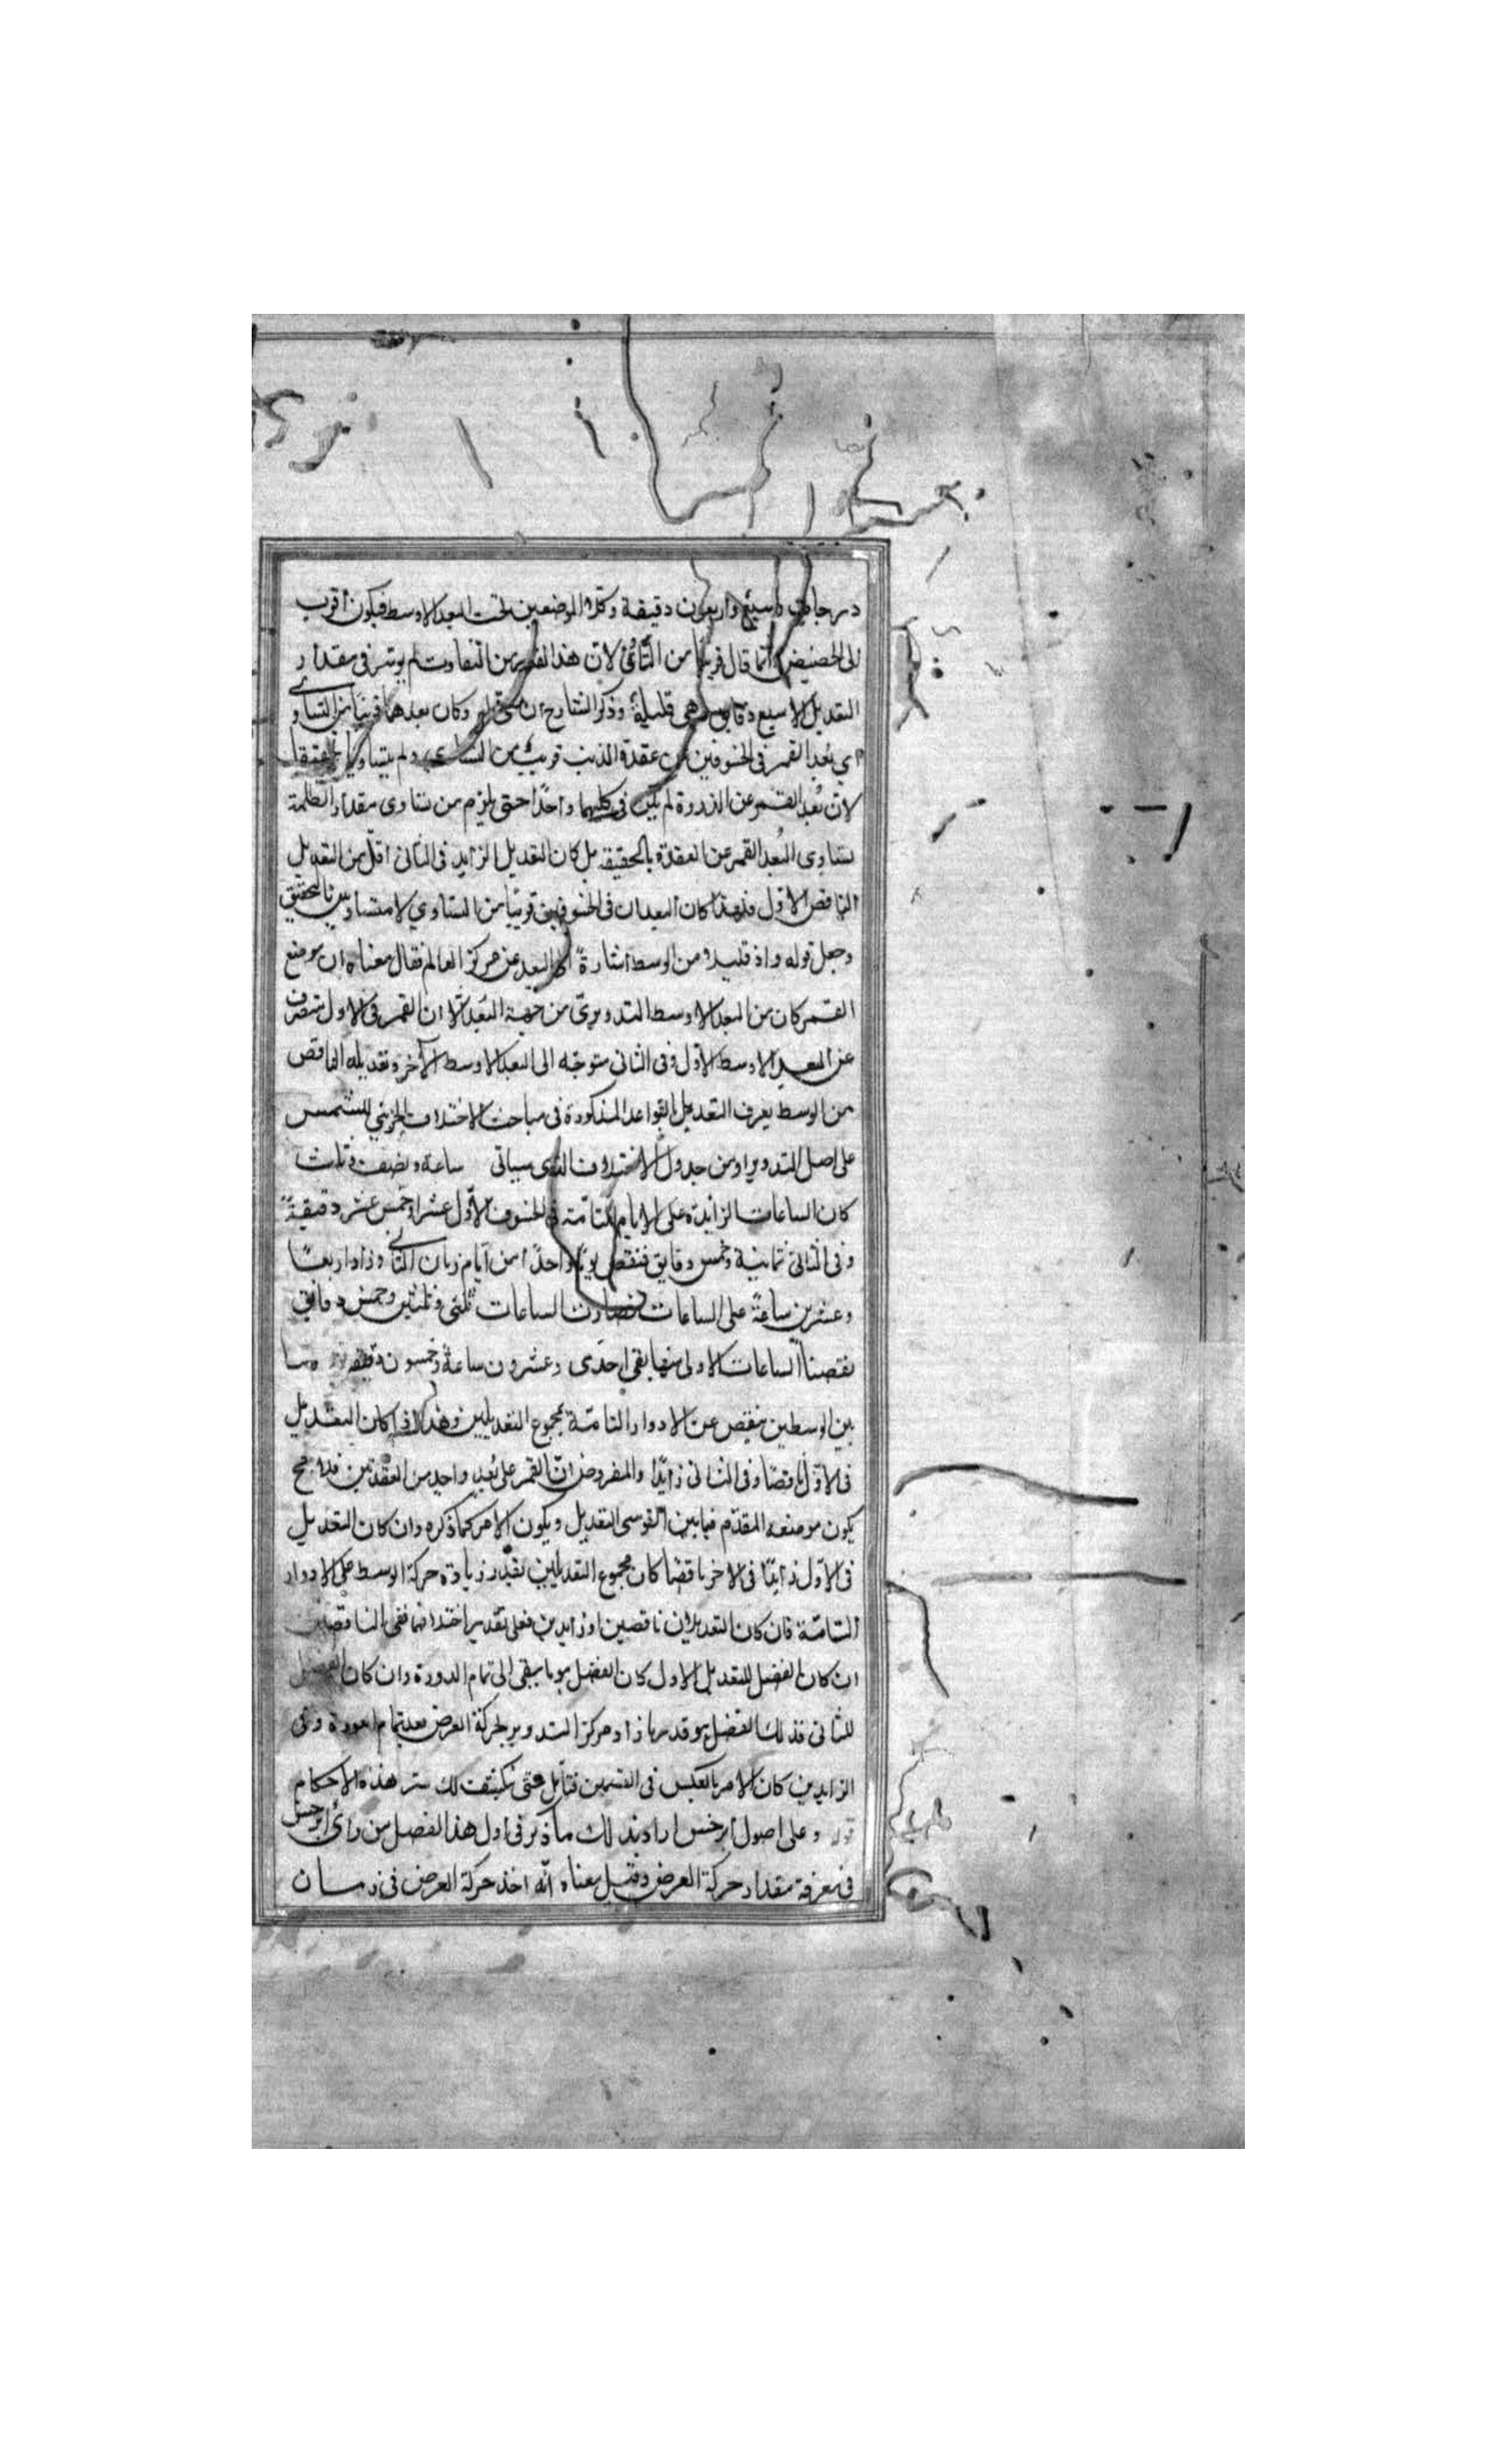 درجات وسبع واربعون دقيقة وكلا الموضعين تحت البعد الاوسط فيكون اقرب
الى الحضيض انما قال قريبا من لان هذا القدر من التفاوت لم يوثر فى مقدار
التعديل الا سبع دقايق وهى قليلة وذكر الشارح ان وكان بعدهما قريبا من التساوى
اى بعد القمر فى الخسوفين عن عقدة الذنب قريب من التساوى ولم يتساويا
لان بعد القمر عن الذروة لم يكن فى كليهما واحدا حتى يلزم من تساوى مقدار الظلمة
تساوى البعد القمر عن العقدة بالحقيقة بل كان التعديل الزايد فى الثانى اقل من التعديل
الناقص الاول فلهذا كان البعدان فى الخسوفين قريبا من التساوي لا متساويين بالتحقيق
وجعل قوله واذ من الوسط اشارة الى البعد عن مركز العالم فقال معناه ان موضع
القمر كان من البعد الاوسط التدويرى من جهة البعد الا ان القمر فى الاول منصرف
عن البعد الاوسط الاول وفى الثانى متوجه الى البعد الاوسط الآخر وتعديله الناقص
من الوسط يعرف التعديل بالقواعد المذكورة فى مباحث الاختلاف الجزئي للشمس
على اصل التدوير او من جدول الاختلاف الذى سياتى ساعة ونصف وثلث
كان الساعات الزايدة على الايام التامة فى الخسوف الاول عشرا وخمس عشر دقيقة
وفى الثانى ثمانية وخمس دقايق فنقص يوما واحدا من ايام زمان الثانى وزاد اربعا
وعشرين ساعة على الساعات فصارت الساعات ثلثى وثلثين وخمس دقايق
نقصنا الساعات الاولى منها بقى احدى وعشرون ساعة وخمسون دقيقة
بين الوسطين ينقص عن الادوار التامة بمجموع التعديلين وهذا اذا كان التعديل
فى الاول ناقصا وفى الثانى زايدا والمفروض ان القمر على بعد واحد من العقدتين
يكون موضعه المقدم فيما بين القوسى التعديل ويكون الامر كما ذكره وان كان التعديل
فى الاول زايدا فى الاخر ناقصا كان مجموع التعديلين بقدر زيادة حركة الوسط على الادوار
التامة فان كان التعديلان ناقصين او زايدين فعلى تقدير اختلافهما ففى الناقصين
ان كان الفضل للتعديل الاول كان الفضل هو ما يبقى الى تمام الدورة وان كان الفضل
للثانى فذلك الفضل هو قدر ما زاد مركز التدوير بحركة العرض بعد تمام الدورة وفى
الزايدين كان الامر بالعكس فى القسمين فتأمل حتى ينكشف لك سر هذه الاحكام
قوله وعلى اصول ابرخس اراد بذلك ما ذكر فى اول هذا الفصل من رأى ابرخس
فى معرفة مقدار حركة العرض وقيل معناه انه اخذ حركة العرض فى زمان